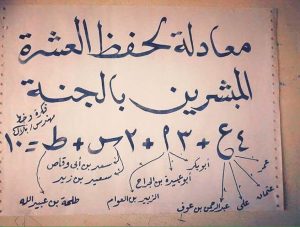 معادلة لحفظ العشرة
المبشرين بالجنة
فكرة وخط
مهندس/
٤ع + ٣أ + ٢س + ط = ١٠
عمر
عثمان
علي
عبدالرحمن بن عوف
أبوبكر
أبوعبيدة بن الجراح
الزبير بن العوام
سعد بن أبي وقاص
سعيد بن زيد
طلحة بن عبيدالله